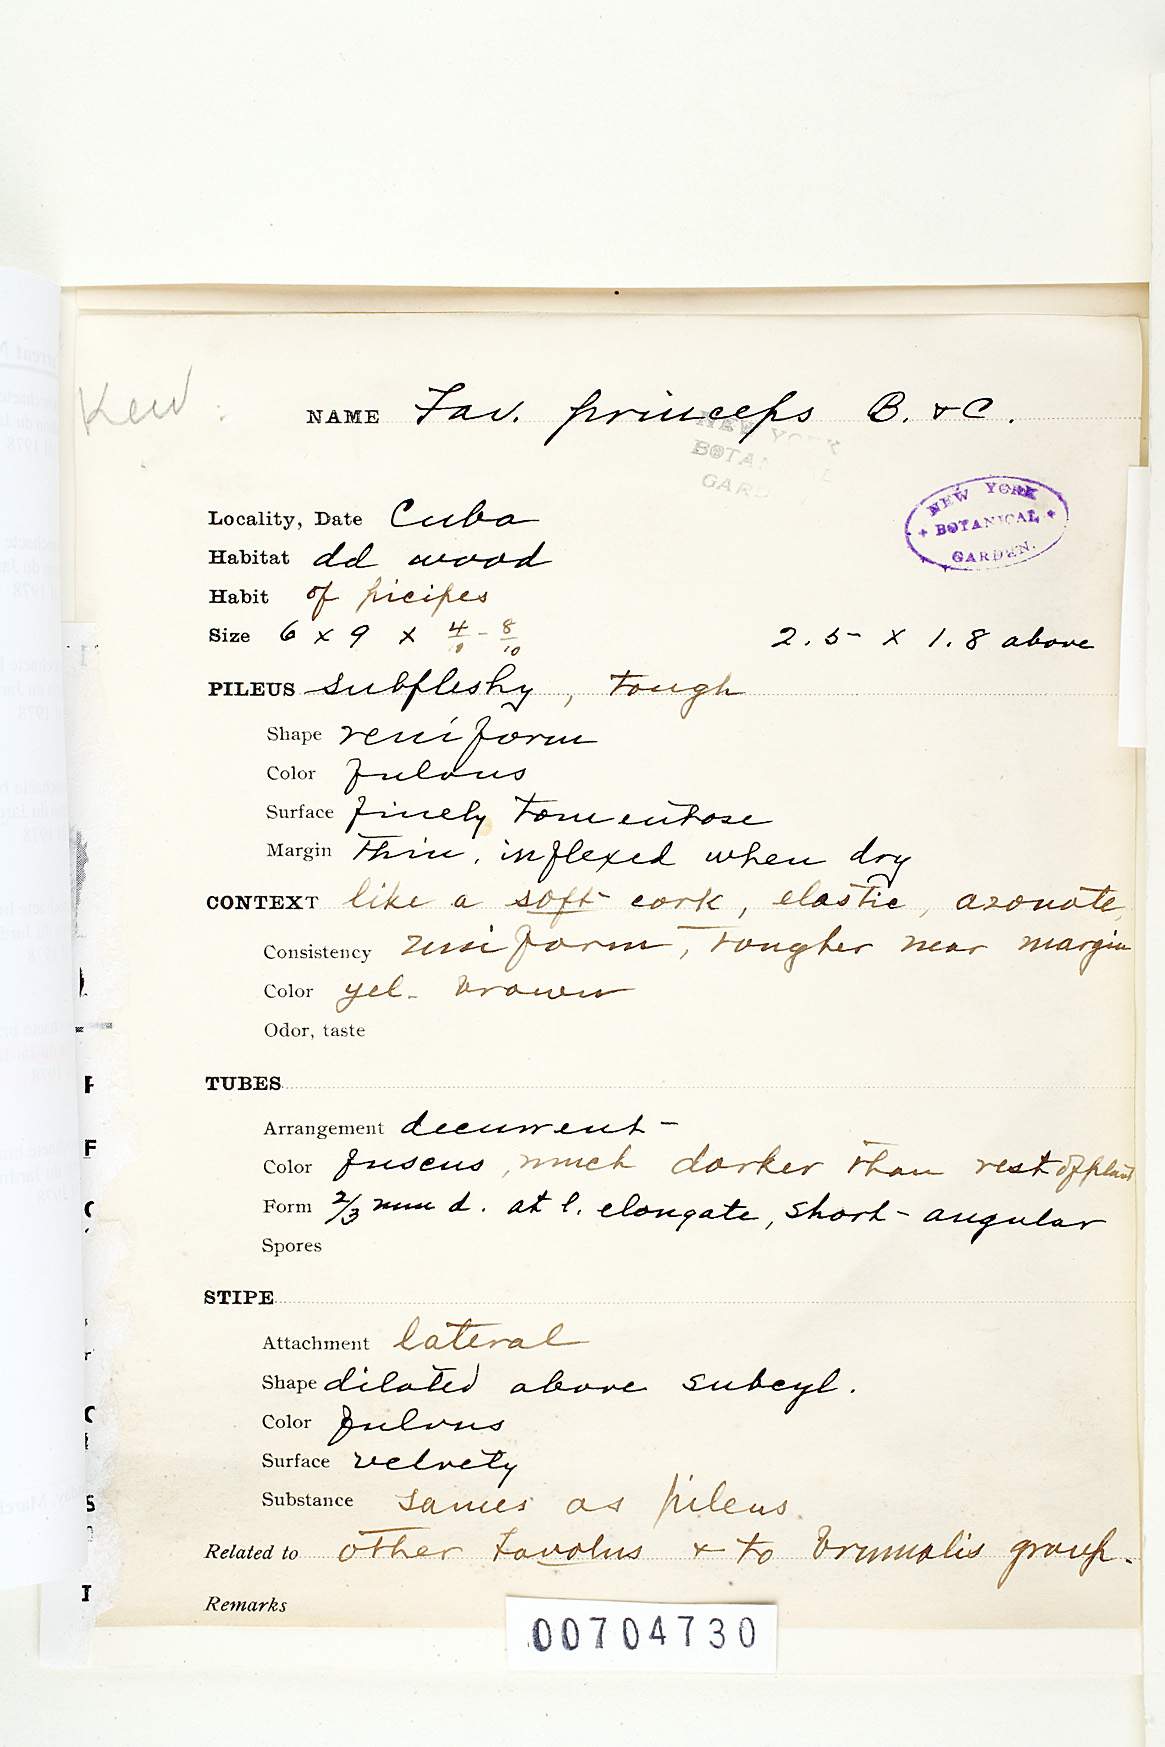 Kew
NAME Fav. princeps B. & C.
NEW YORK
BOTANICAL
GARDEN
Locality, Date Cuba
NEW YORK
BOTANICAL
GARDEN.
Habitat dd wood
Habit of picipes
Size 6 x 9 x 4/10 - 8/10 2.5 x 1.8 above
PILEUS subfleshy, tough
Shape reniform
Color fulvus
Surface finely tomentose
Margin thin, inflexed when dry
CONTEXT like a soft cork, elastic, azonate,
Consistency reniform, tougher near margin
Color yel. brown
Odor, taste
TUBES
Arrangement decurrent
Color fuscus, much darker than rest of plant
Form 2/3 mm d. at l. elongate, short-angular
Spores
STIPE
Attachment lateral
Shape dilated above subcyl.
Color fulvus
Surface velvety
Substance sames as pileus
Related to other Favolus & to brumalis group.
Remarks
00704730